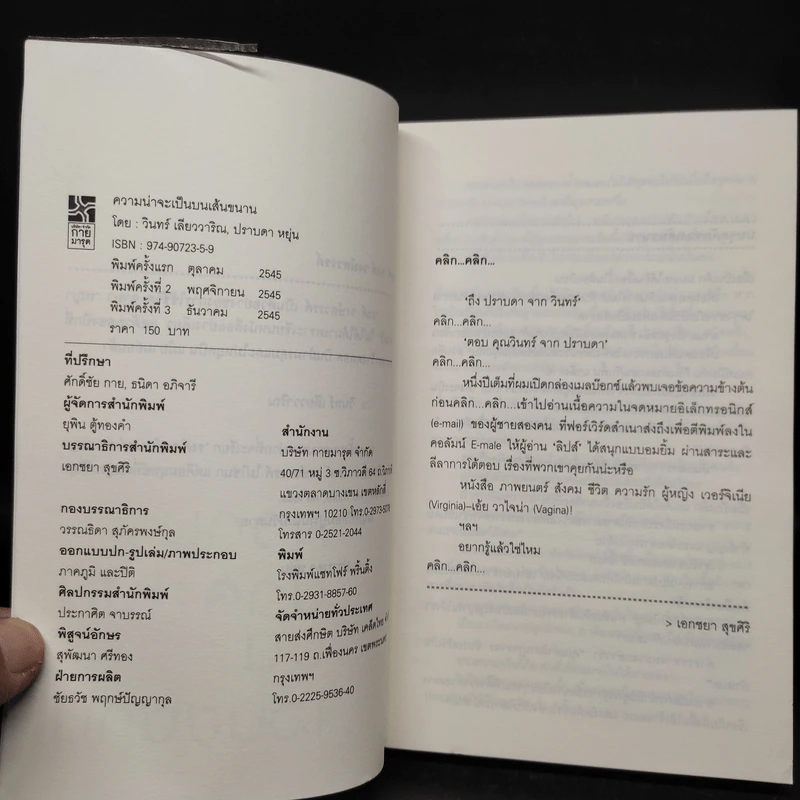 บริษัท
กาย
มารุต
ความน่าจะเป็นบนเส้นขนาน
โดย : วินทร์ เลียววาริณ, ปราบดา หยุ่น
ISBN : 974-90723-5-9
พิมพ์ครั้งแรก ตุลาคม 2545
พิมพ์ครั้งที่ 2 พฤศจิกายน 2545
พิมพ์ครั้งที่ 3 ธันวาคม 2545
ราคา 150 บาท
ที่ปรึกษา
ศักดิ์ชัย กาย, ธนิดา อภิจารี
ผู้จัดการสำนักพิมพ์
ยุพิน ตู้ทองคำ
บรรณาธิการสำนักพิมพ์
เอกชยา สุขศิริ
กองบรรณาธิการ
วรรณธิดา สุภัครพงษ์กุล
ออกแบบปก-รูปเล่ม/ภาพประกอบ
ภาคภูมิ และปิติ
ศิลปกรรมสำนักพิมพ์
ประกาศิต จาบรรณ์
พิสูจน์อักษร
สุพัฒนา ศรีทอง
ฝ่ายการผลิต
ชัยธวัช พฤกษ์ปัญญากุล
สำนักงาน
บริษัท กายมารุต จำกัด
40/71 หมู่ 3 ซ.วิภาวดี 64 ถ.วิภาวดี
แขวงตลาดบางเขน เขตหลักสี่
กรุงเทพฯ 10210 โทร.0-2973-
โทรสาร 0-2521-2044
พิมพ์
โรงพิมพ์แซทโฟร์ พริ้นติ้ง
โทร.0-2931-8857-60
จัดจำหน่ายทั่วประเทศ
สายส่งศึกษิต บริษัท เคล็ดไทย
117-119 ถ.เฟื่องนคร เขตพระนคร
กรุงเทพฯ
โทร.0-2225-9536-40
คลิก...คลิก...
'ถึง ปราบดา จาก วินทร์'
คลิก...คลิก...
'ตอบ คุณวินทร์ จาก ปราบดา'
คลิก...คลิก...
หนึ่งปีเต็มที่ผมเปิดกล่องเมลบ๊อกซ์แล้วพบเจอข้อความข้างต้น
ก่อนคลิก...คลิก...เข้าไปอ่านเนื้อความในจดหมายอิเล็กทรอนิกส์
(e-mail) ของผู้ชายสองคน ที่ฟอร์เวิร์ดสำเนาส่งถึงเพื่อตีพิมพ์ลงใน
คอลัมน์ E-male ให้ผู้อ่าน 'ลิปส์' ได้สนุกแบบอมยิ้ม ผ่านสาระและ
ลีลาการโต้ตอบ เรื่องที่พวกเขาคุยกันน่ะหรือ
หนังสือ ภาพยนตร์ สังคม ชีวิต ความรัก ผู้หญิง เวอร์จิเนีย
(Virginia)–เอ้ย วาไจน่า (Vagina)!
ฯลฯ
อยากรู้แล้วใช่ไหม
คลิก...คลิก...
> เอกชยา สุขศิริ